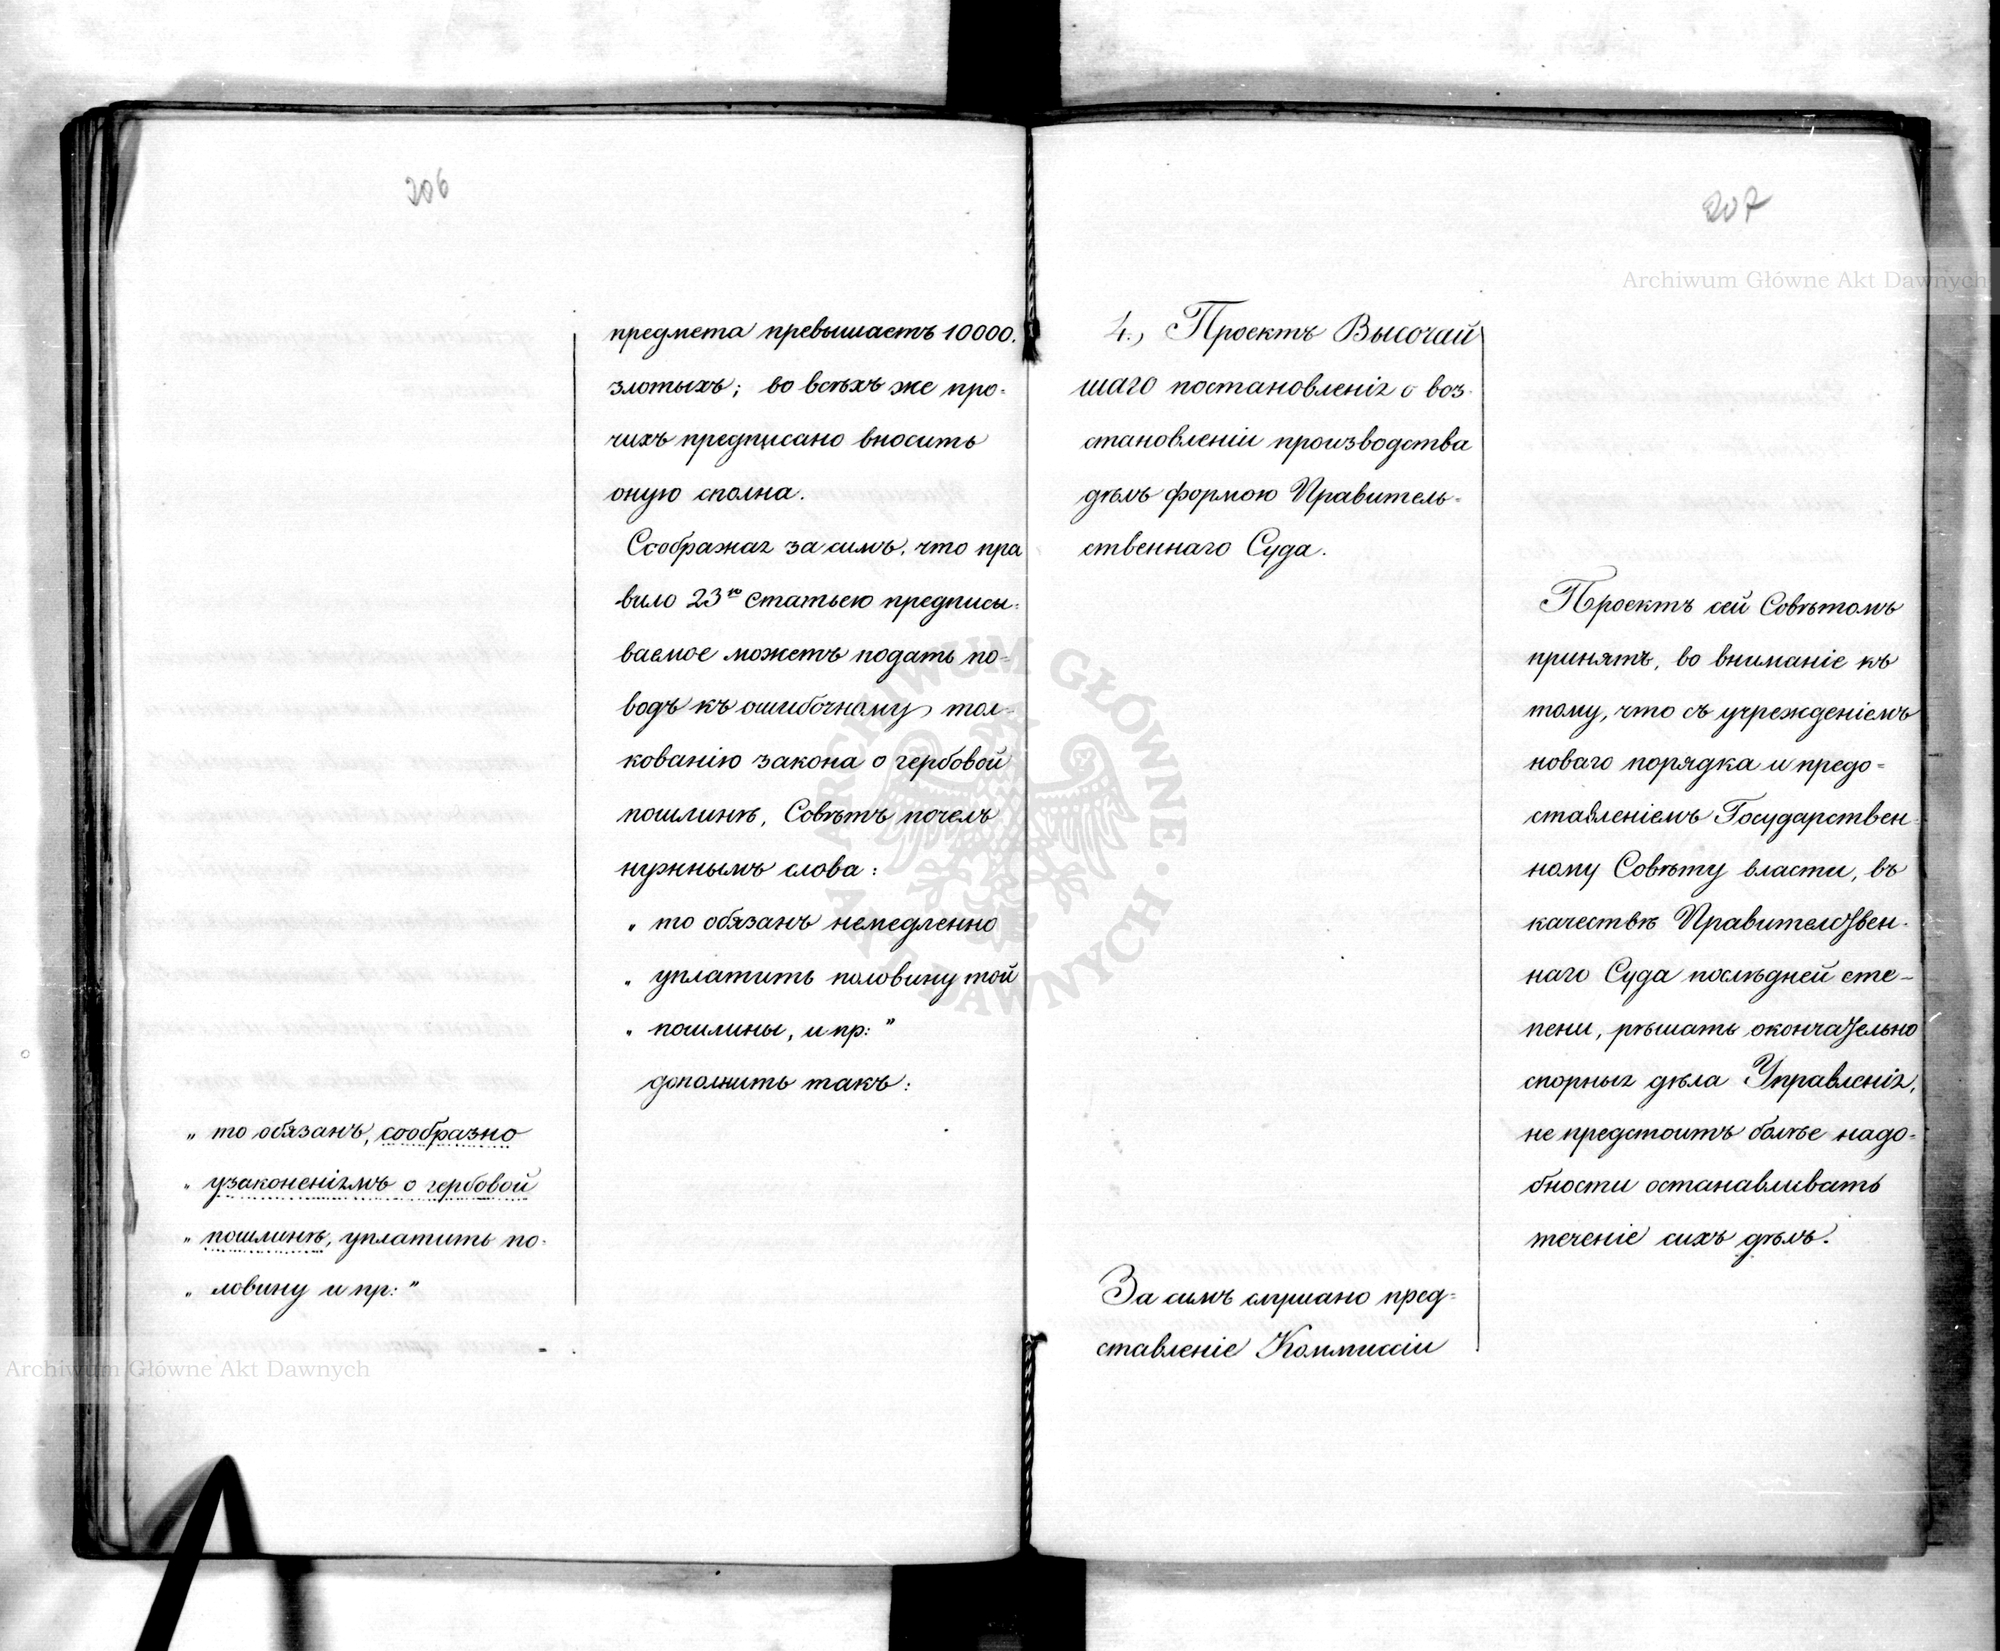 206
предмета превышаетъ 10000.
злотыхъ; во всѣхъ же про-
чихъ предписано вносить
оную сполна.
Соображая за симъ, что пра
вило 23ю статьею предписы-
ваемое можетъ подать по-
водъ къ ошибочному тол-
кованію закона о гербовой
пошлинѣ, Совѣтъ почелъ
нужнымъ слова:
„ то обязанъ немедленно
„ уплатить половину той
„ пошлины, и пр: "
дополнить такъ:
„ то обязанъ, сообразно
„ узаконеніямъ о гербовой
„ пошлинѣ, уплатить по-
„ ловину и пр: "
207
4., Проектъ Высочай
шаго постановленія о воз-
становленіи производства
дѣлъ формою Правитель-
ственнаго Суда.
Проектъ сей Совѣтомъ
принятъ, во вниманіе къ
тому, что съ учрежденіемъ
новаго порядка и предо-
ставленіемъ Государствен-
ному Совѣту власти, въ
качествѣ Правительствен-
наго Суда послѣдней сте-
пени, рѣшать окончательно
спорныя дѣла Управленія,
не предстоитъ болѣе надо-
бности останавливать
теченіе сихъ дѣлъ.
За симъ слушано пред-
ставленіе Коммиссіи
Archiwum Główne Akt Dawnych
ARCHIWUM GŁÓWNE AKT DAWNYCH
Archiwum Główne Akt Dawnych